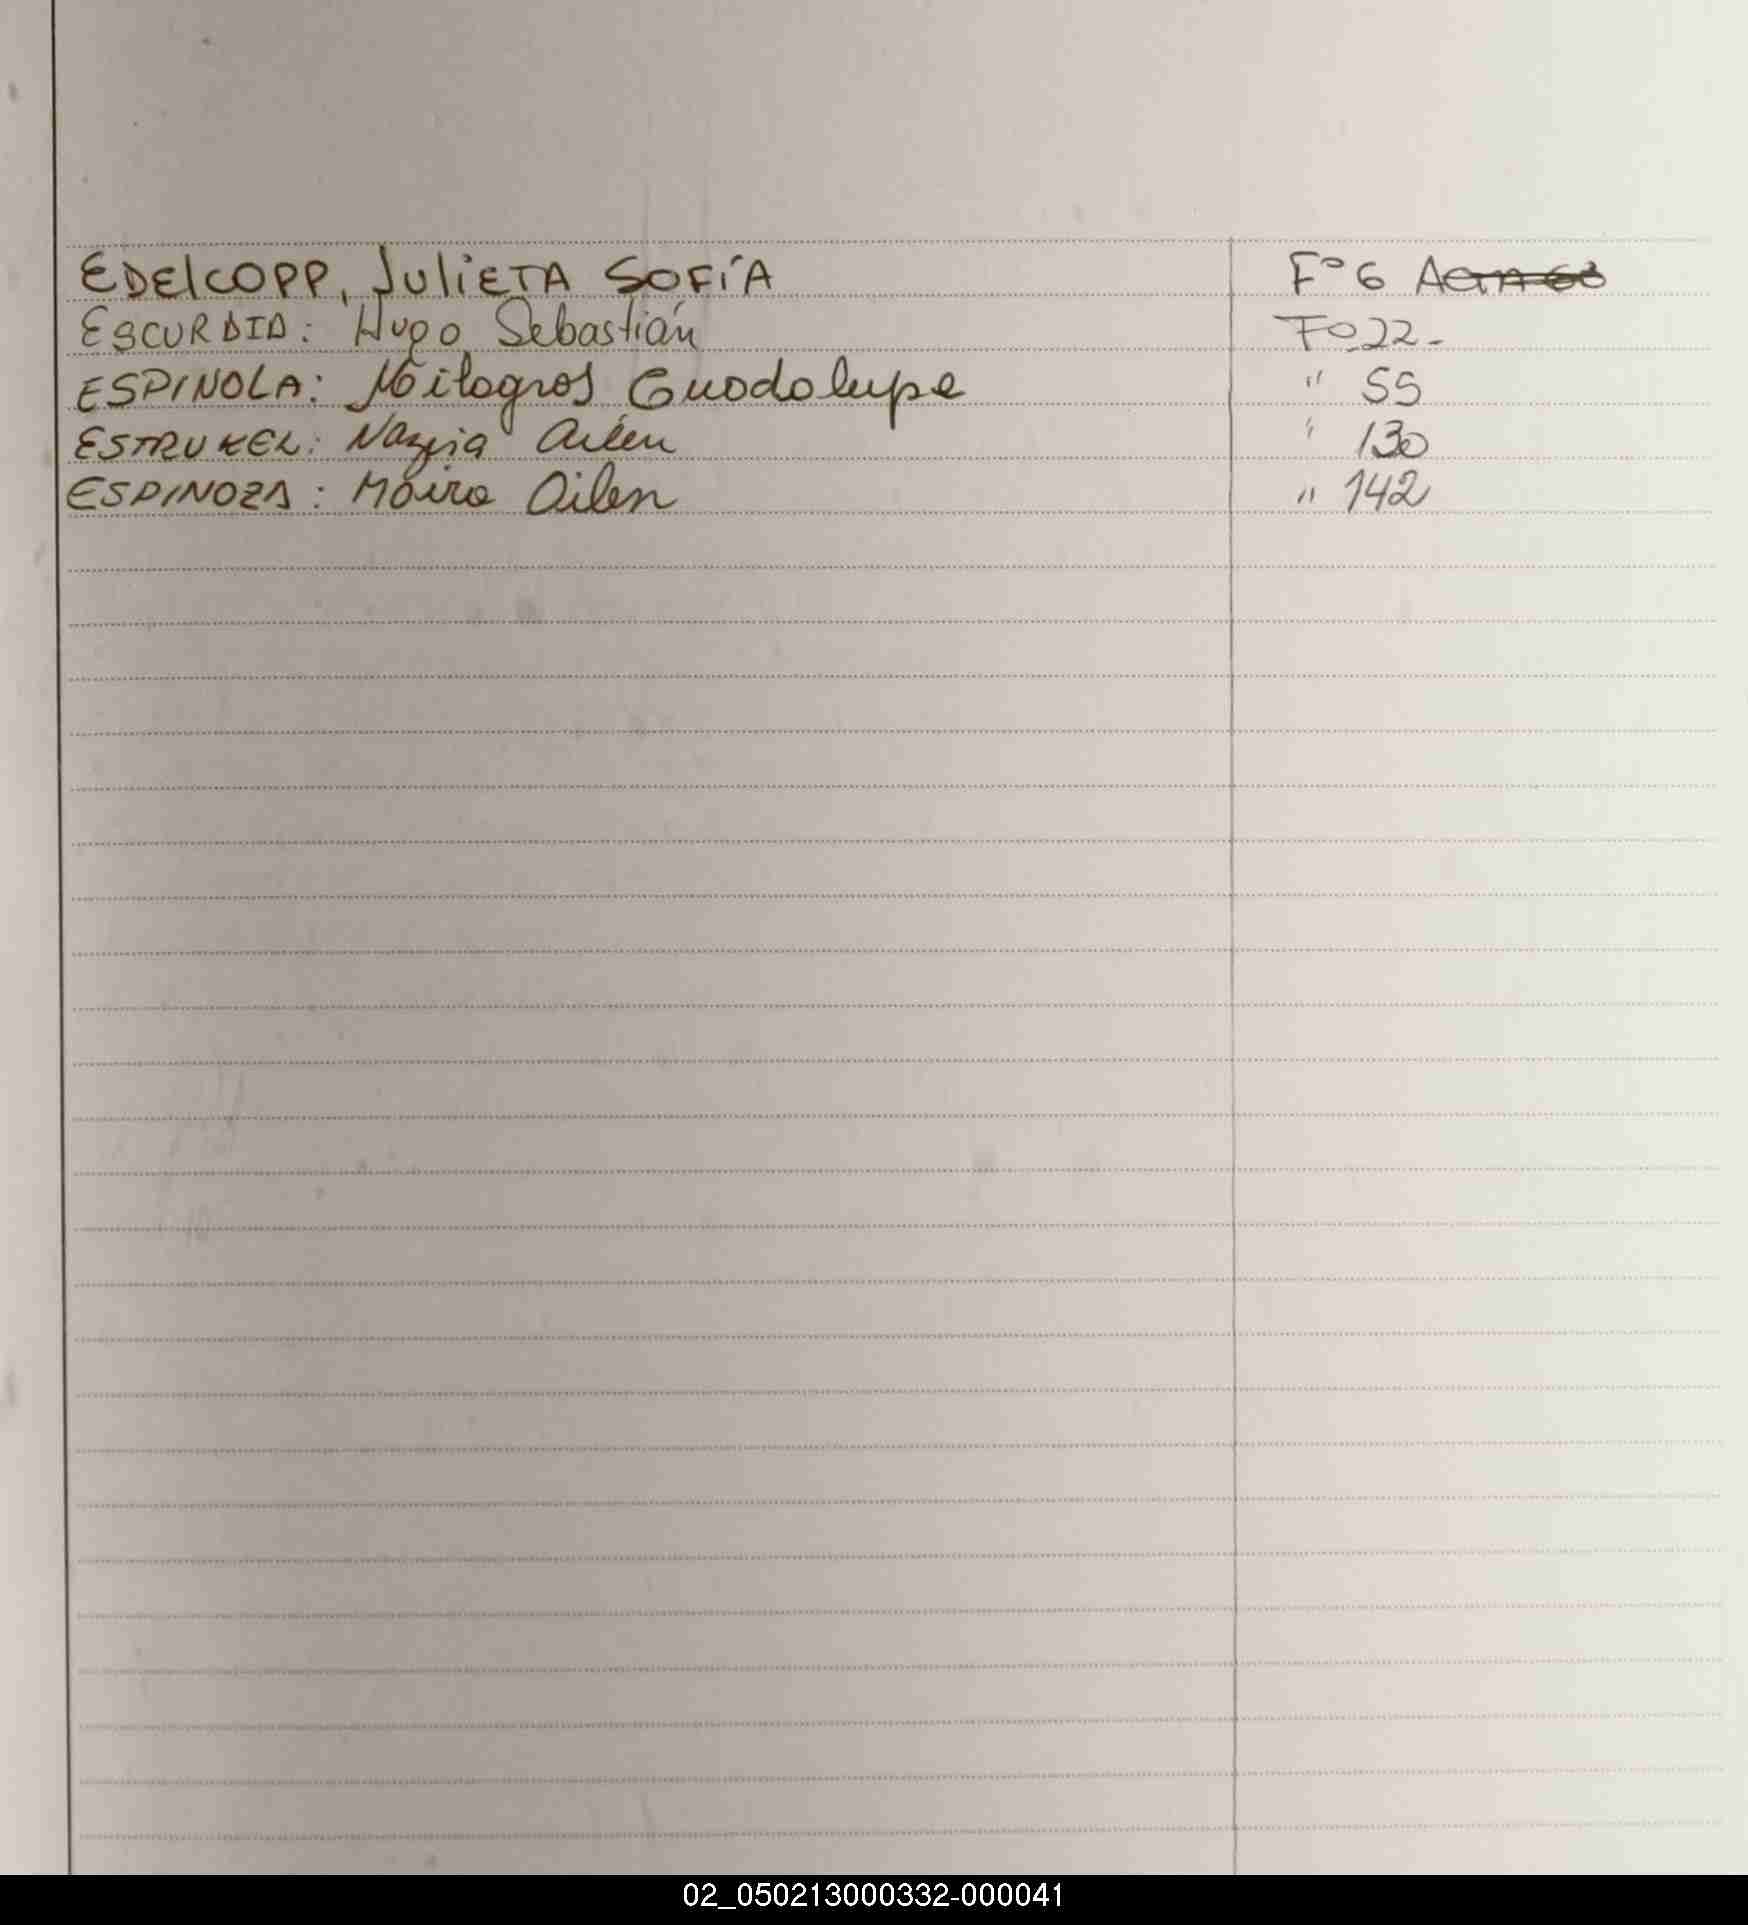 EDELCOPP, JULIETA SOFÍA F° 6
ESCURDIA: Hugo Sebastián Fo 22-
ESPINOLA: Milagros Guadalupe " 55
ESTRUKEL: Nazria Ailén " 130
ESPINOZA: Moira Ailen " 142
02_050213000332-000041